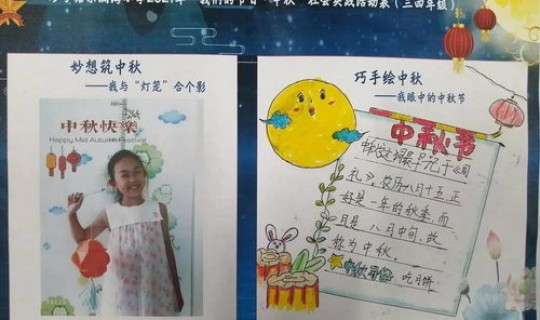 2021年"我们的节日·中秋"社会实践活动表（三四年级）
妙想筑中秋
——我与"灯笼"合个影
中秋快樂
Happy Mid Autumn Festival
巧手绘中秋
——我眼中的中秋节
中秋节
中秋这个词最早见于《周
礼》，农历八月十五，正
好是一年的秋季，而
且是八月中旬，故
称为中秋。
吃月饼